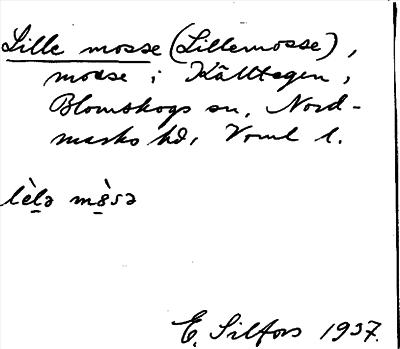 Lille mosse (Lillemosse),
mosse i Källtegen,
Blomskogs sn, Nord-
marks hd, Vrml l.
lὲlə mòsə
E. Silfors 1937.